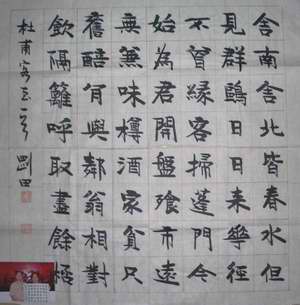 舍南舍北皆春水但
見群鷗日日来華徑
不曾緣客掃蓬門今
始為君開盤飱市遠
無兼味樽酒家貧只
舊醅肯與鄰翁相對
飲隔籬呼取盡餘桮
杜甫客至一首 劉田